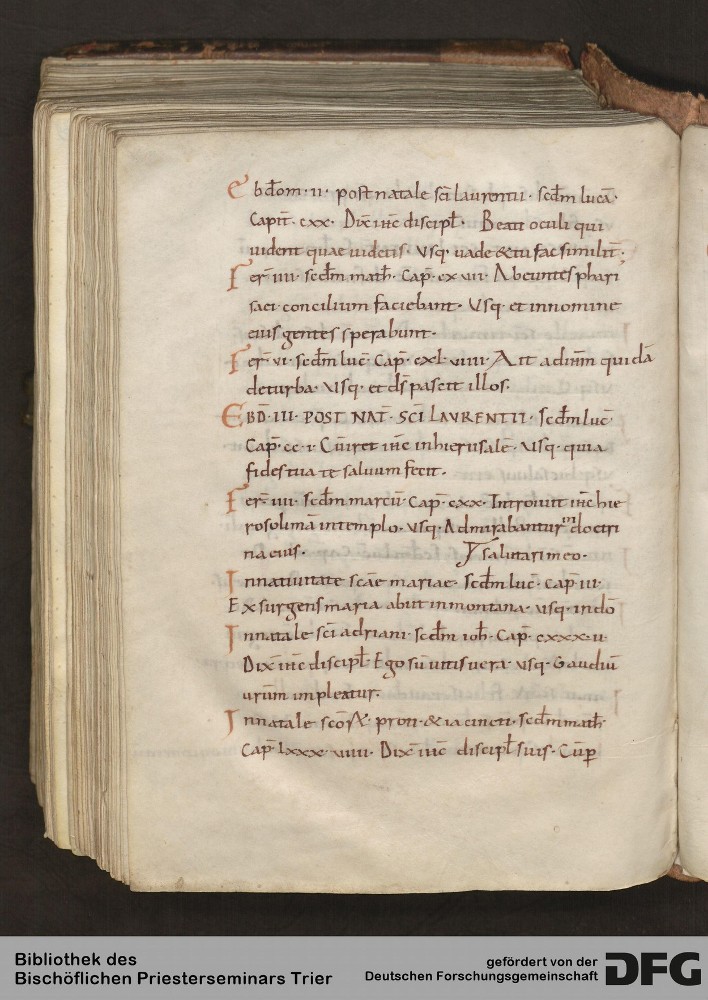 Ebđom· ii· post natale sc̄i laurentii· scđm lucā·
Capit̄· cxx· Dix̄ ih̄c discipł· Beati oculi qui
uident quae uidetis· Usq· uade & tu fac similit̄;
Fer̄ iiii· scđm math̄· Cap̄· cxvii· Abeuntes phari
saei concilium faciebant· Usq· et innomine
eius gentes sperabunt·
Fer̄ vi· scđm luc̄· Cap̄· cxlviiii· Ait ad ih̄m quidā
deturba· Usq· et ds̄ pascit illos·
EBD̄· III· POST NAT̄· SC̄I LAURENTII· scđm luc̄
Cap̄· cc·i· Cū iret ih̄c inhierusalē· Usq· quia
fides tua te saluum fecit·
Fer̄ iiii· scđm marcū· Cap̄· cxx· Introiuit ih̄c hie
rosolimā intemplo· usq· Admirabantur in doctri
na eius· Ƴ salutari meo·
Innatiuitate scāe mariae· scđm luc̄· cap̄ iii·
Exsurgens maria abiit in montana· usq· in dō
Innatale sc̄i adriani· scđm ioh̄· Cap̄· cxxxv·ii·
Dix̄ ih̄c discipł· Ego sū uitis uera· usq· Gaudiū
urūm impleatur·
Innatale scōꝝ· proti· & iacincti· scđm math̄
Cap̄ lxxxviiii· Dix̄ ih̄c discipł suis· Cūp̄
Bibliothek des
Bischöflichen Priesterseminars Trier
gefördert von der
Deutschen Forschungsgemeinschaft
DFG